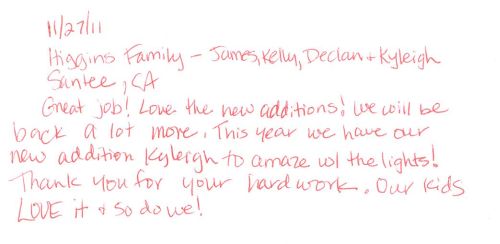 11/27/11
Higgins Family - James, Kelly, Declan + Kyleigh
Santee, CA
Great job! Love the new additions! We will be
back a lot more. This year we have our
new addition Kyleigh to amaze w/ the lights!
Thank you for your hard work. Our kids
LOVE it + so do we!